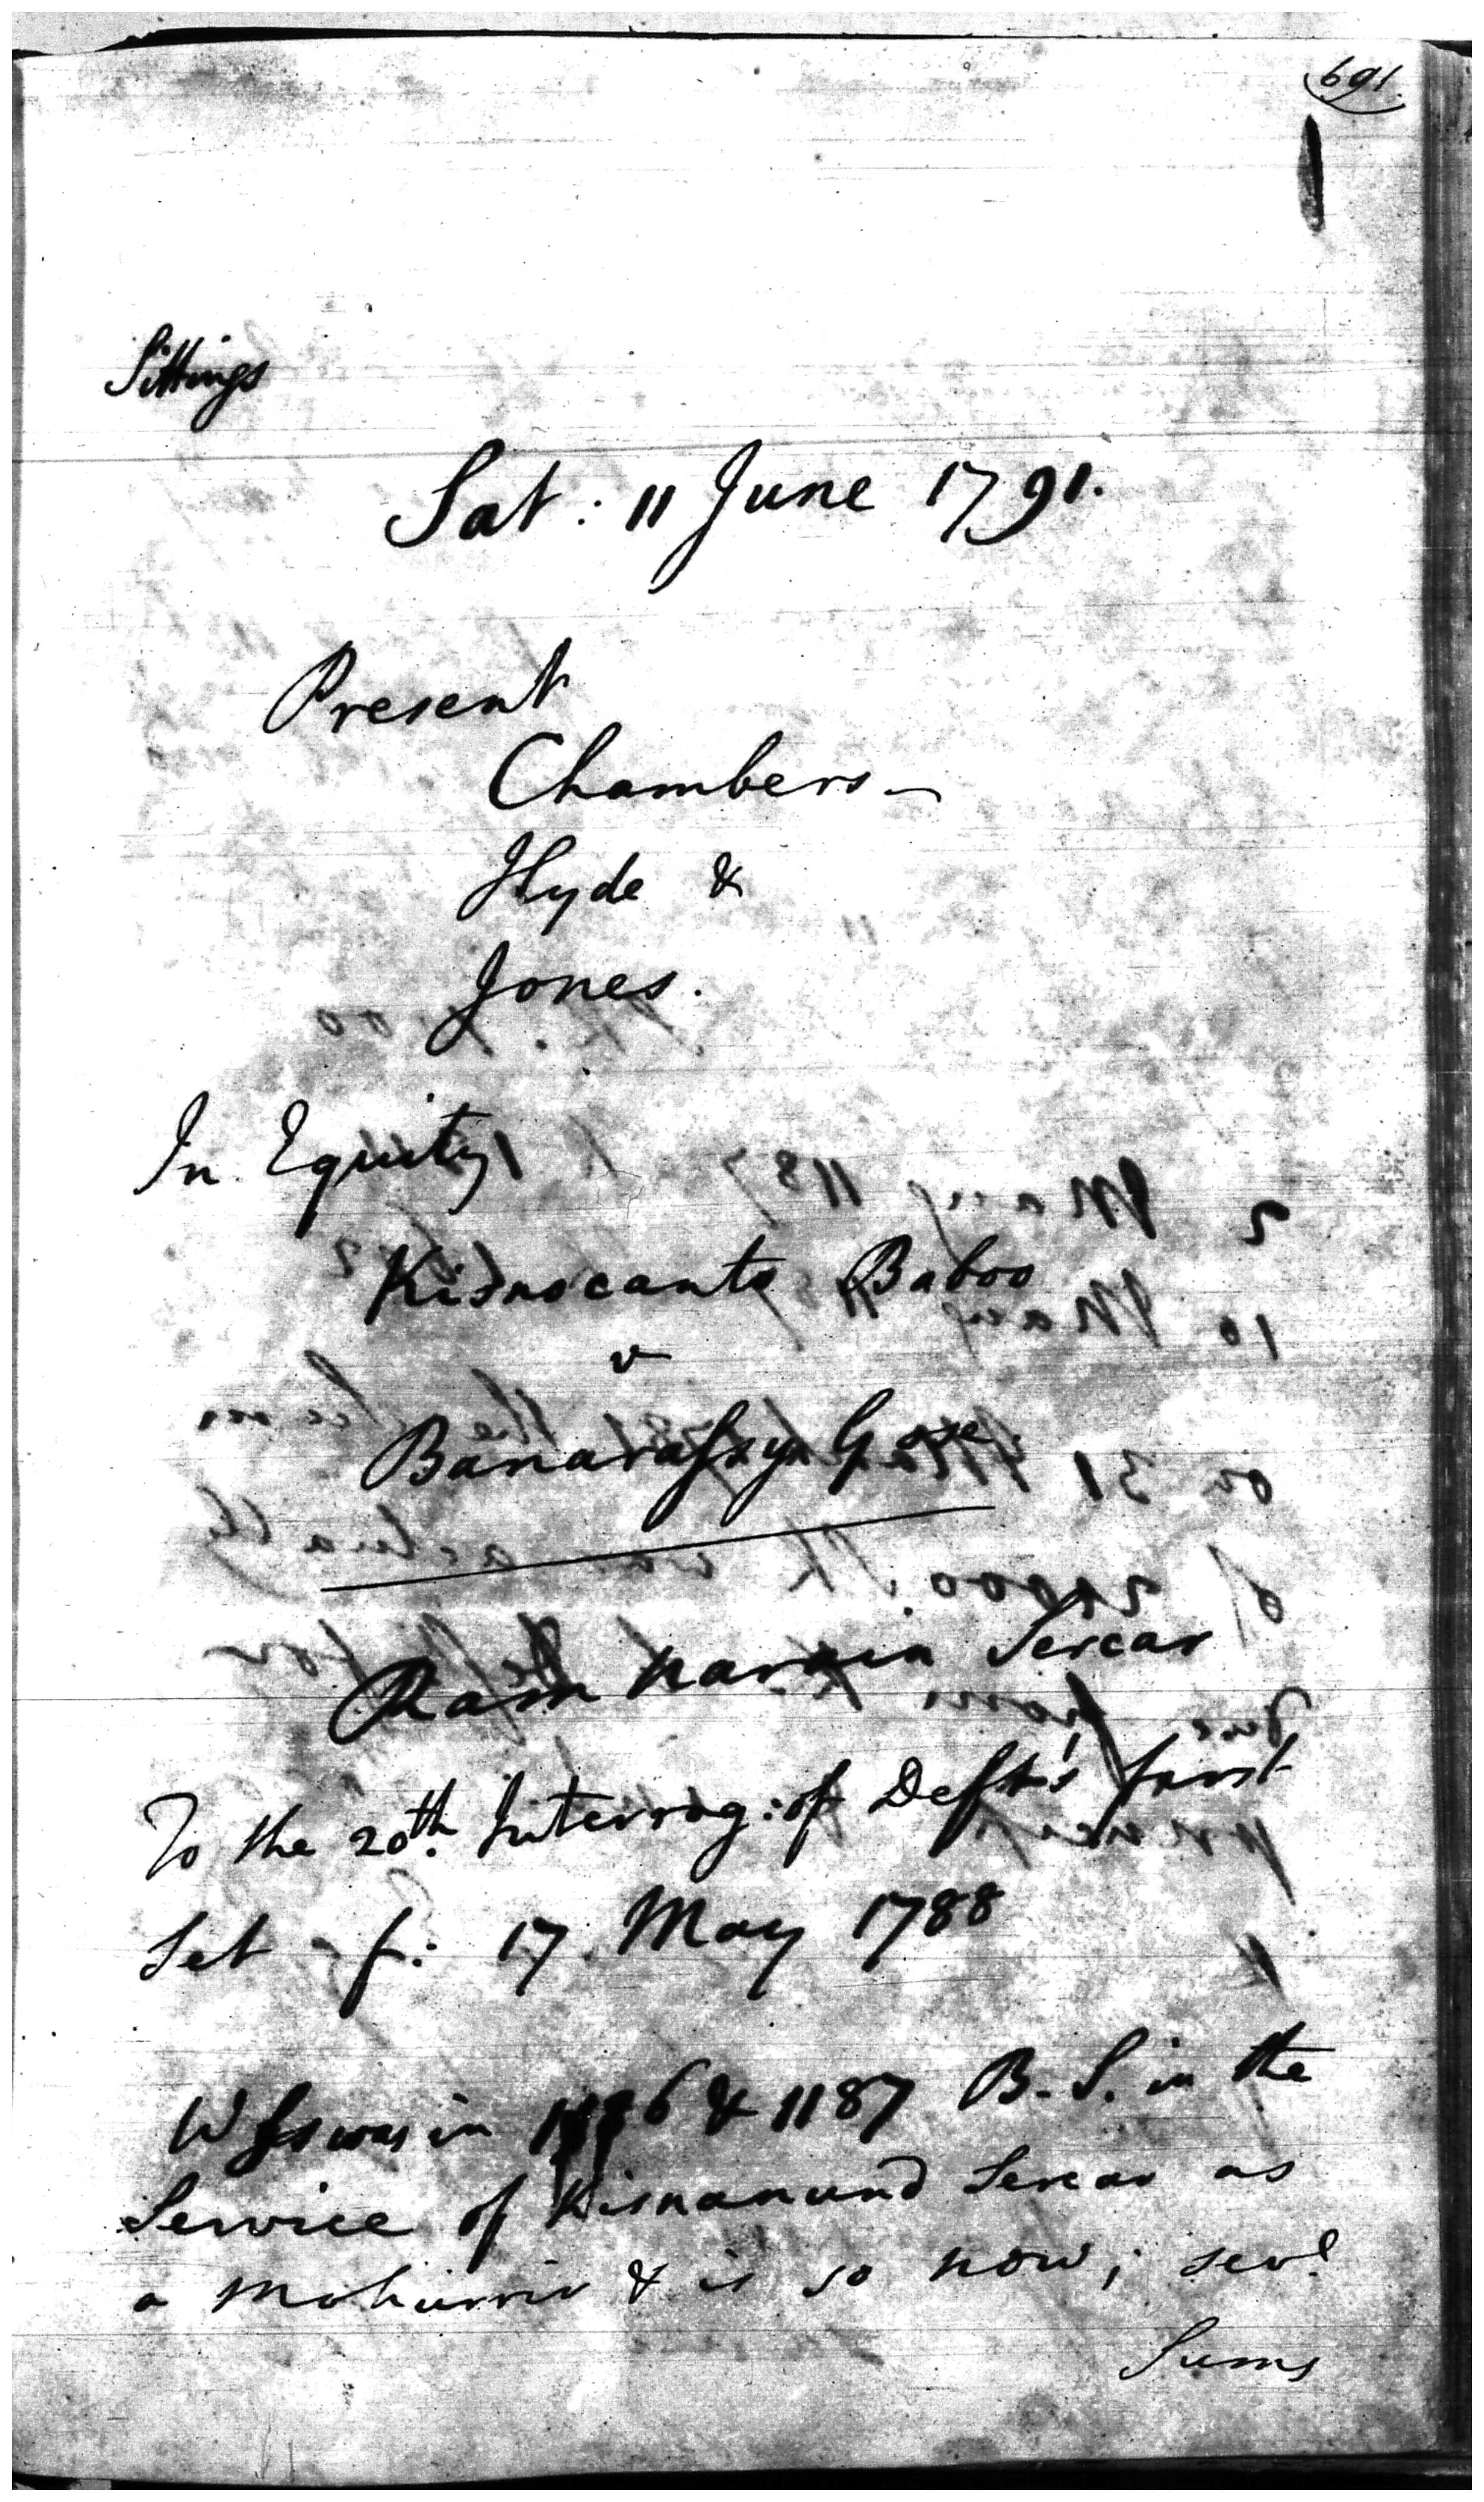 691.
Sittings
Sat: 11 June 1791.
Present
Chambers
Hyde &
Jones.
In Equity
Kisnocanto Baboo
v
Banarassy Gose
Ram Narain Sercar
To the 20th. Interrog: of Deft's first
Set f: 17 May 1788
Wss was in 1186 & 1187 B. S. in the
Service of Kisnanund Sercar as
a Mohurrir & is so now; sevl
Sums